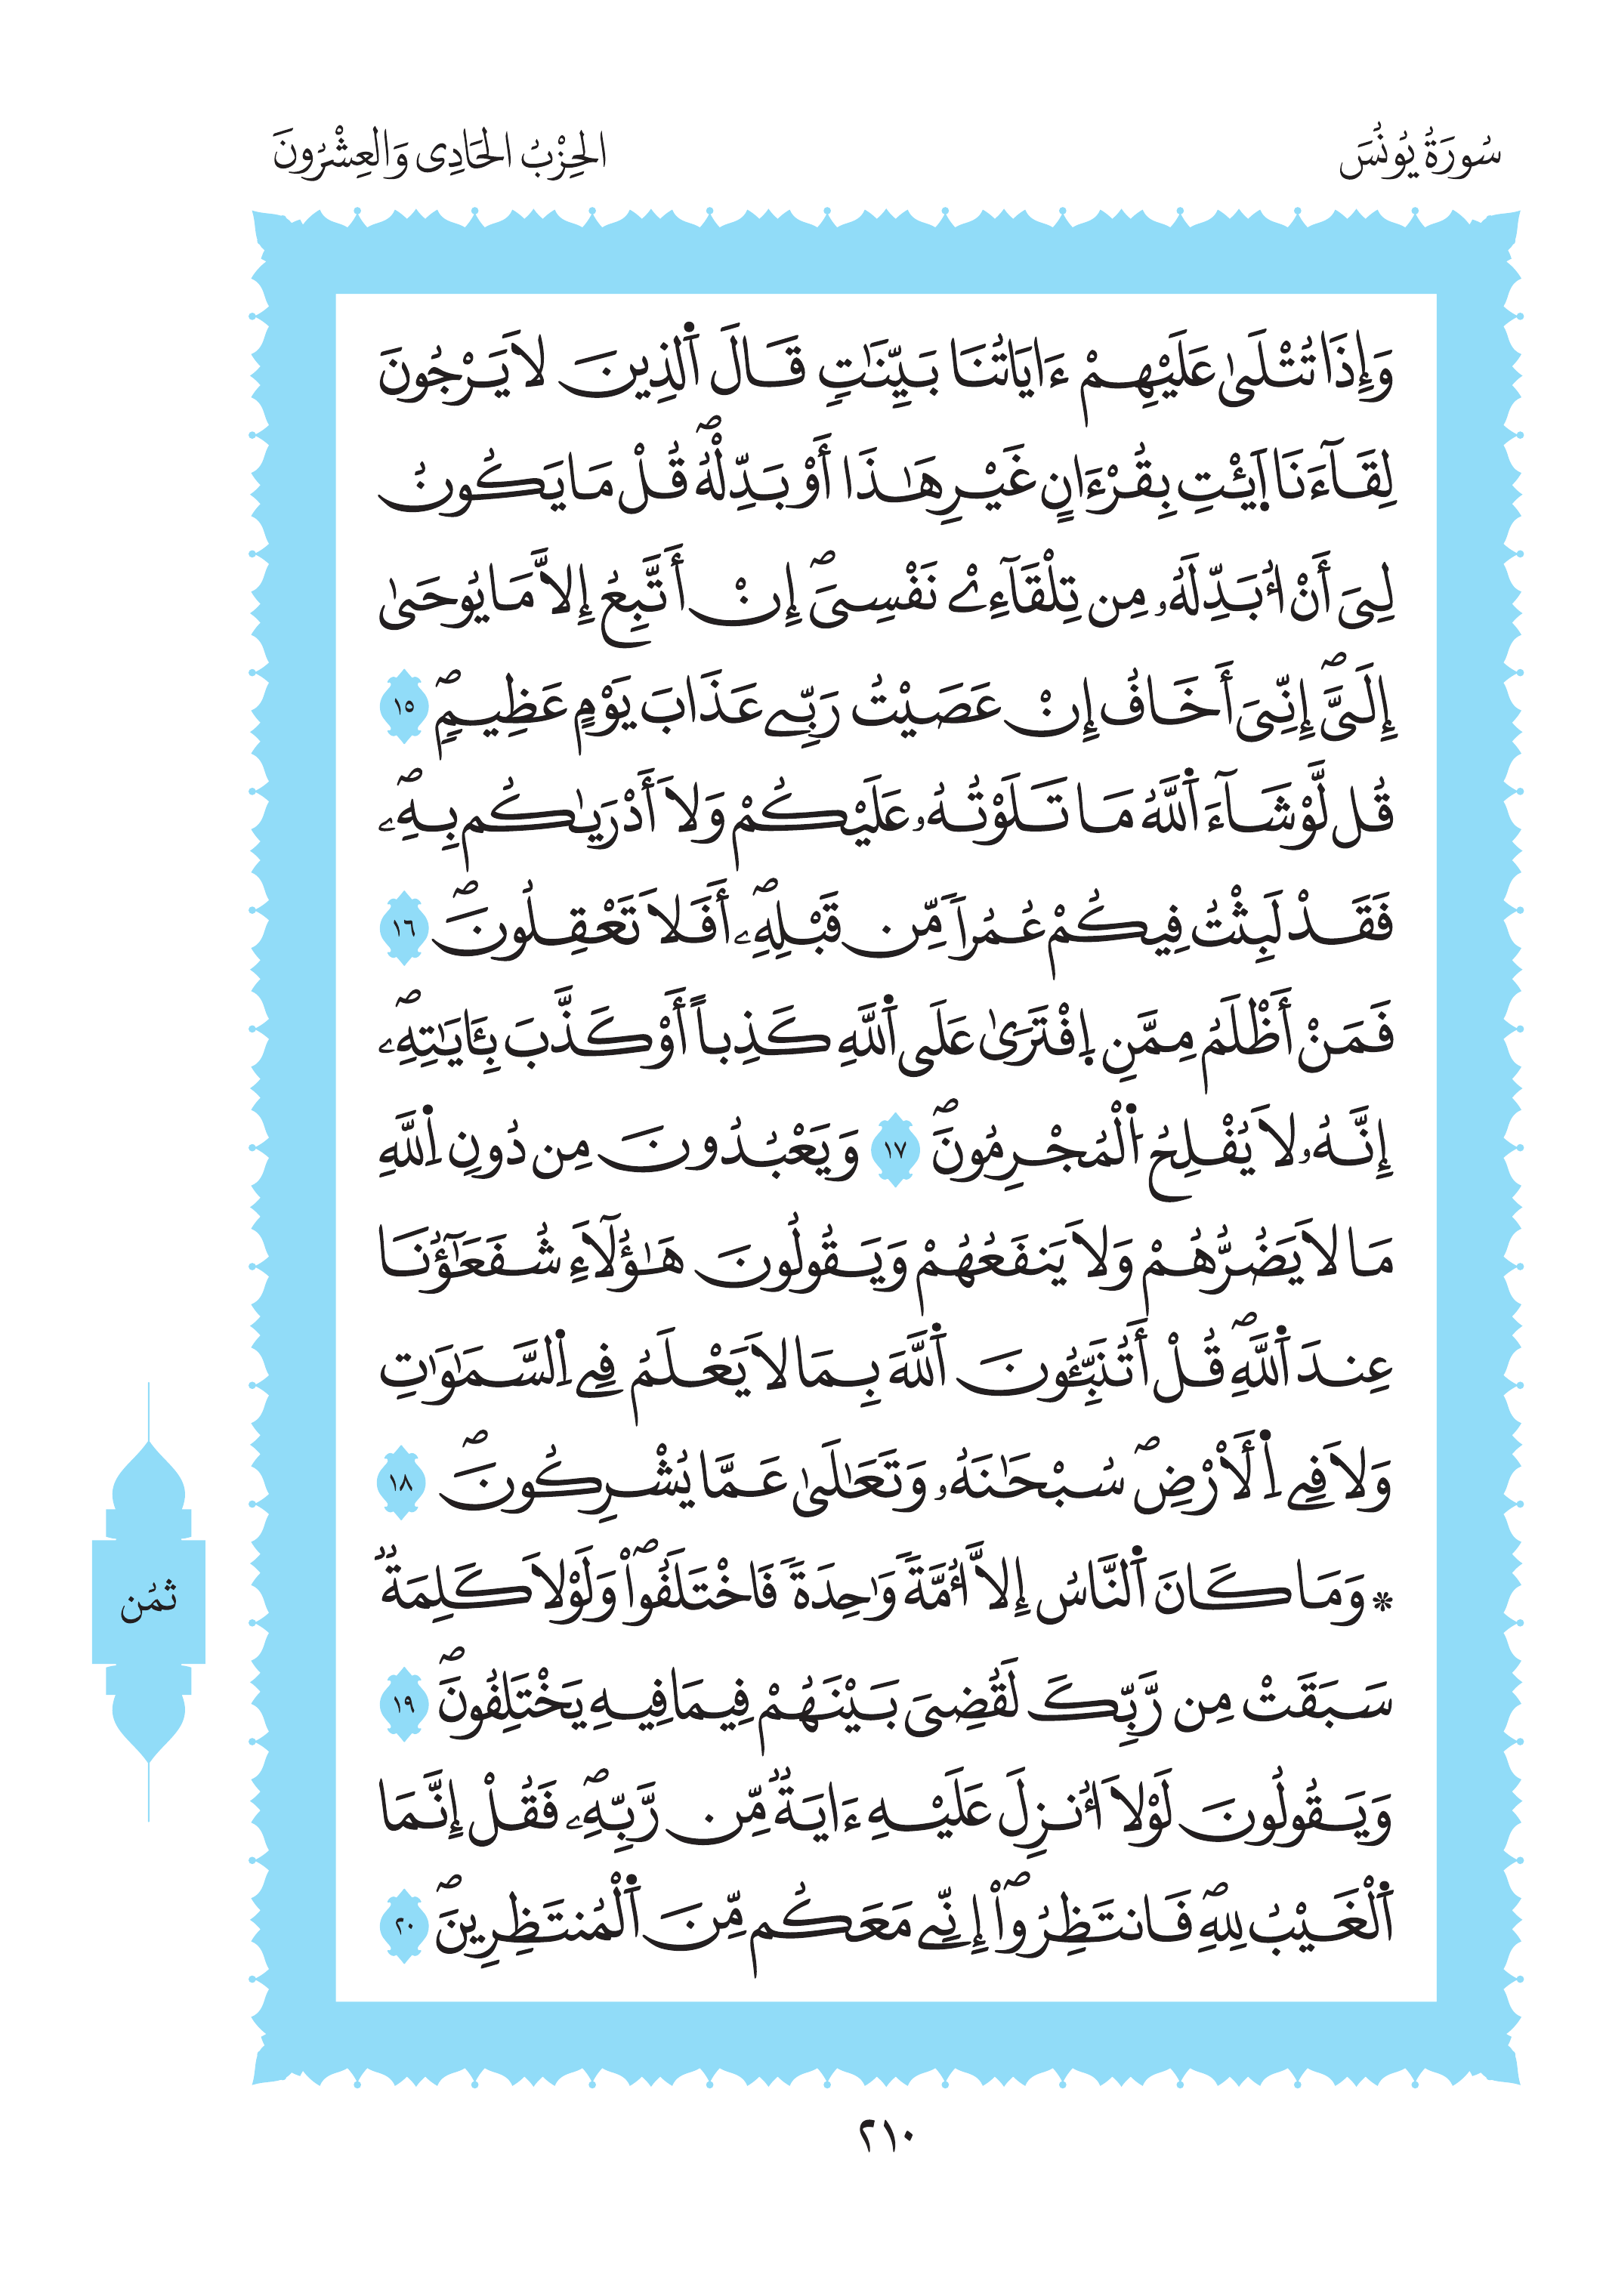 سُورَةُ يُونُسَ
الحِزْبُ الحَادِى وَالعِشْرُونَ
وَإِذَا تُتْلَىٰ عَلَيْهِمْ ءَايَاتُنَا بَيِّنَٰتٖ قَالَ اَ۬لذِينَ لَا يَرْجُونَ
لِقَآءَنَا اَ۪يتِ بِقُرْءَانٍ غَيْرِ هَٰذَا أَوْ بَدِّلْهُۖ قُلْ مَا يَكُونُ
لِىَ أَنْ ا۟بَدِّلَهُۥ مِن تِلْقَآءِےْ نَفْسِىَۖ إِنْ أَتَّبِعُ إِلَّا مَا يُوحَىٰ
إِلَىَّۖ إِنِّىَ أَخَافُ إِنْ عَصَيْتُ رَبِّے عَذَابَ يَوْمٍ عَظِيمٖۖ ١٥
قُل لَّوْ شَآءَ اَ۬للَّهُ مَا تَلَوْتُهُۥ عَلَيْكُمْ وَلَا أَدْرَيٰكُم بِهِۦۖ
فَقَدْ لَبِثْتُ فِيكُمْ عُمُراٗ مِّن قَبْلِهِۦۖ أَفَلَا تَعْقِلُونَۖ ١٦
فَمَنْ أَظْلَمُ مِمَّنِ اِ۪فْتَرَىٰ عَلَى اَ۬للَّهِ كَذِباً أَوْ كَذَّبَ بِـَٔايَٰتِهِۦۖ
إِنَّهُۥ لَا يُفْلِحُ اُ۬لْمُجْرِمُونَۖ ١٧ وَيَعْبُدُونَ مِن دُونِ اِ۬للَّهِ
مَا لَا يَضُرُّهُمْ وَلَا يَنفَعُهُمْ وَيَقُولُونَ هَٰؤُلَآءِ شُفَعَٰٓؤُنَا
عِندَ اَ۬للَّهِۖ قُلْ أَتُنَبِّـُٔونَ اَ۬للَّهَ بِمَا لَا يَعْلَمُ فِے اِ۬لسَّمَٰوَٰتِ
وَلَا فِے اِ۬لْأَرْضِۖ سُبْحَٰنَهُۥ وَتَعَٰلَىٰ عَمَّا يُشْرِكُونَۖ ١٨
* وَمَا كَانَ اَ۬لنَّاسُ إِلَّا أُمَّةٗ وَٰحِدَةٗ فَاخْتَلَفُواْۖ وَلَوْلَا كَلِمَةٞ
سَبَقَتْ مِن رَّبِّكَ لَقُضِىَ بَيْنَهُمْ فِيمَا فِيهِ يَخْتَلِفُونَۖ ١٩
وَيَقُولُونَ لَوْلَا أُنزِلَ عَلَيْهِ ءَايَةٞ مِّن رَّبِّهِۦۖ فَقُلْ إِنَّمَا
اَ۬لْغَيْبُ لِلهِۖ فَانتَظِرُوٓاْۖ إِنِّے مَعَكُم مِّنَ اَ۬لْمُنتَظِرِينَۖ ٢٠
ثمُن
٢١٠